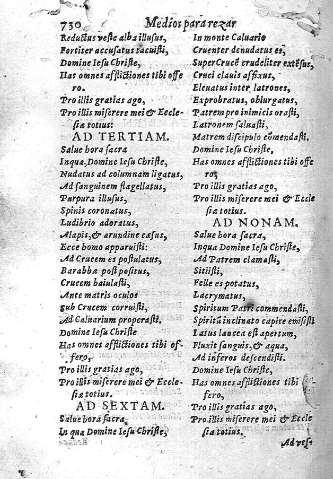 730 Medios para rezar
Reductus veste alba illusus,
Fortiter accusatus tacuisti,
Domine Iesu Christe,
Has omnes afflictiones tibi offe
ro.
Pro illis gratias ago,
Pro illis miserere mei & Eccle-
siæ totius.
AD TERTIAM.
Salue hora sacra
In qua, Domine Iesu Christe,
Nudatus ad columnam ligatus,
Ad sanguinem flagellatus,
Purpura illusus,
Spinis coronatus,
Ludibrio adoratus,
Alapis, & arundine cæsus,
Ecce homo apparuisti:
Ad Crucem es postulatus,
Barabbæ post positus,
Crucem baiulasti,
Ante matris oculos
sub Crucem corruisti,
Ad Caluarium properasti,
Domine Iesu Christe
Has omnes afflictiones tibi of-
fero,
Pro illis gratias ago,
Pro illis miserere mei & Eccle-
siæ totius.
AD SEXTAM.
Salue hora sacra,
In qua Domine Iesu Christe,
In monte Caluario
Cruenter denudatus es,
Super Crucē crudeliter extēsus,
Cruci clauis affixus,
Eleuatus inter latrones,
Exprobratus, obiurgatus,
Patrem pro inimicis orasti,
Latronem saluasti,
Matrem discipulo cōmendasti,
Domine Iesu Christe,
Has omnes afflictiones tibi offe
ro,
Pro illis gratias ago,
Pro illis miserere mei & Eccle
siæ totius.
AD NONAM.
Salue hora sacra,
In qua Domine Iesu Christe,
Ad Patrem clamasti,
Sitisti,
Felle es potatus,
Lacrymatus,
Spiritum Patri commendasti,
Spiritū inclinato capite emisisti
Latus lancea est apertum,
Fluxit sanguis, & aqua,
Ad inferos descendisti.
Domine Iesu Christe,
Has omnes afflictiones tibi of-
fero,
Pro illis gratias ago,
Pro illis miserere mei & Eccle
siæ totius.
Ad vesе